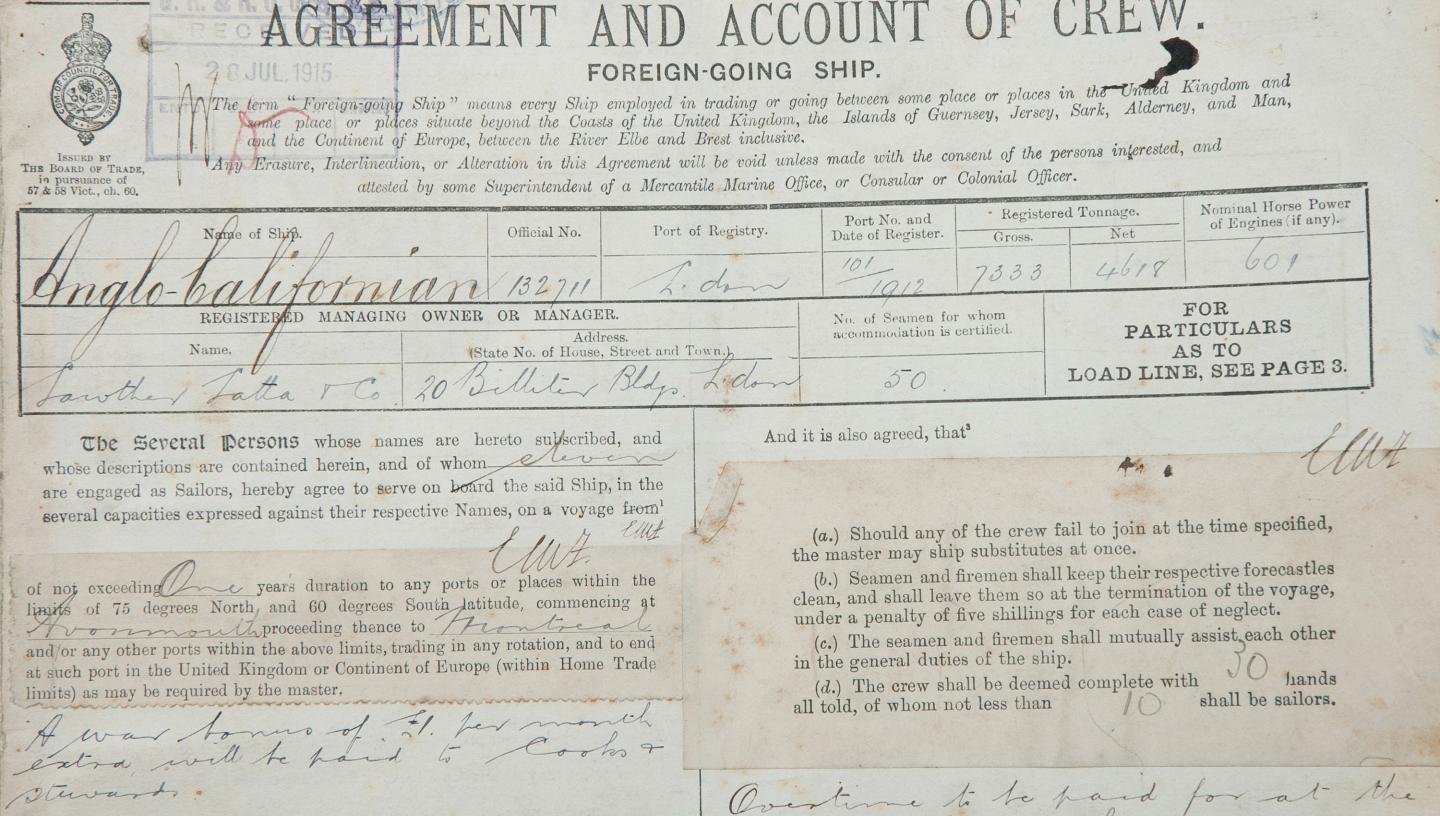 RECEIVED
28 JUL. 1915
AGREEMENT AND ACCOUNT OF CREW.
FOREIGN-GOING SHIP.
ISSUED BY
THE BOARD OF TRADE,
in pursuance of
57 & 58 Vict., ch. 60.
The term “Foreign-going Ship” means every Ship employed in trading or going between some place or places in the United Kingdom and
some place or places situate beyond the Coasts of the United Kingdom, the Islands of Guernsey, Jersey, Sark, Alderney, and Man,
and the Continent of Europe, between the River Elbe and Brest inclusive.
Any Erasure, Interlineation, or Alteration in this Agreement will be void unless made with the consent of the persons interested, and
attested by some Superintendent of a Mercantile Marine Office, or Consular or Colonial Officer.
Name of Ship.
Official No.
Port of Registry.
Port No. and
Date of Register.
Registered Tonnage.
Gross.
Net
Nominal Horse Power
of Engines (if any).
Anglo-Californian
132711
L.don
101/1912
7333
4618
601
REGISTERED MANAGING OWNER OR MANAGER.
Name.
Address.
(State No. of House, Street and Town.)
No. of Seamen for whom
accommodation is certified.
FOR
PARTICULARS
AS TO
LOAD LINE, SEE PAGE 3.
Lawther Latta & Co.
20 Billiter Bldgs. L.don
50.
The Several Persons whose names are hereto subscribed, and
whose descriptions are contained herein, and of whom eleven
are engaged as Sailors, hereby agree to serve on board the said Ship, in the
several capacities expressed against their respective Names, on a voyage from¹
of not exceeding One years duration to any ports or places within the
limits of 75 degrees North and 60 degrees South latitude, commencing at
Avonmouth proceeding thence to Montreal
and/or any other ports within the above limits, trading in any rotation, and to end
at such port in the United Kingdom or Continent of Europe (within Home Trade
limits) as may be required by the master.
A war bonus of £1. per month
extra, will be paid to Cooks &
stewards.
And it is also agreed, that³
(a.) Should any of the crew fail to join at the time specified,
the master may ship substitutes at once.
(b.) Seamen and firemen shall keep their respective forecastles
clean, and shall leave them so at the termination of the voyage,
under a penalty of five shillings for each case of neglect.
(c.) The seamen and firemen shall mutually assist each other
in the general duties of the ship.
(d.) The crew shall be deemed complete with 30 hands
all told, of whom not less than 10 shall be sailors.
Overtime to be paid for at the